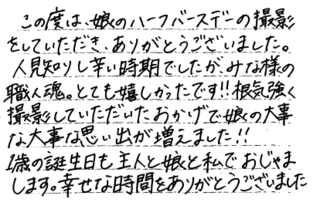 この度は、娘のハーフバースデーの撮影
をしていただき、ありがとうございました。
人見知りし辛い時期でしたが、みな様の
職人魂。とても嬉しかったです!!根気強く
撮影していただいたおかげで娘の大事
な大事な思い出が増えました!!
1歳の誕生日も主人と娘と私でおじゃま
します。幸せな時間をありがとうございました